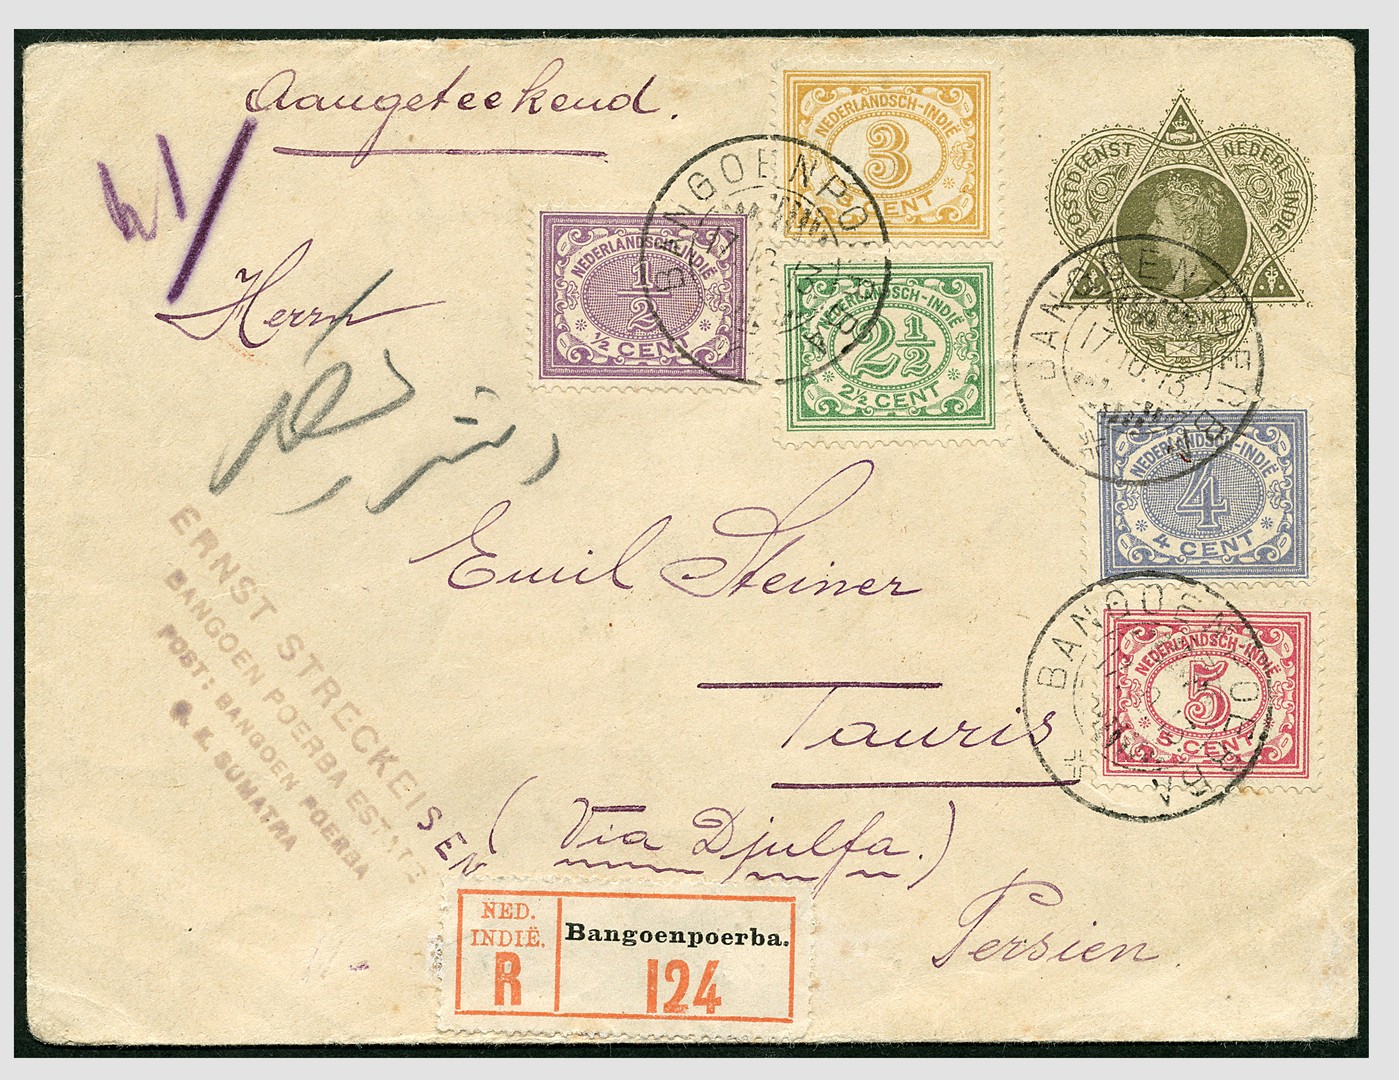 Aangeteekend.
Herrn
Emil Steiner
Tauris
(Via Djulfa.)
Persien
دفتر
ERNST STRECKEISEN
BANGOEN POERBA ESTATE
POST: BANGOEN POERBA
O. K. SUMATRA
NED.
INDIË.
R
Bangoenpoerba.
124
NEDERLANDSCH-INDIË
3
3 CENT
NEDERLANDSCH-INDIË
1/2
1/2 CENT
NEDERLANDSCH-INDIË
2 1/2
2 1/2 CENT
POSTDIENST NEDERL. INDIE
20 CENT
NEDERLANDSCH-INDIË
4
4 CENT
NEDERLANDSCH-INDIË
5
5 CENT
BANGOENPOERBA
17.10.13
BANGOENPOERBA
17.10.13
BANGOENPOERBA